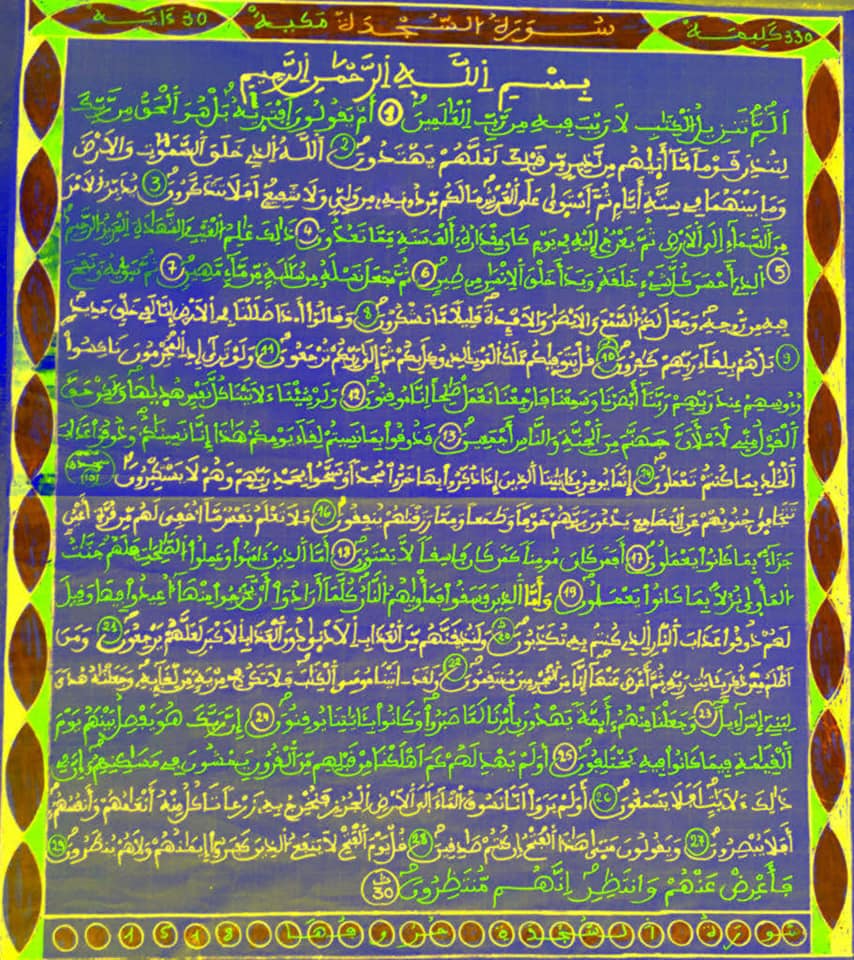 330 كليمة سورة السجدة مكية 30 ءاية
بسم الله الرحمن الرحيم
ألم تنزيل الكتب لا ريب فيه من رب العلمين 1 أم يقولون افتريه بل هو الحق من ربك
لتنذر قوما ما أتيهم من نذير من قبلك لعلهم يهتدون 2 الله الذي خلق السموت والارض
وما بينهما في ستة أيام ثم استوى على العرش ما لكم من دونه من ولي ولا شفيع أفلا تتذكرون 3 يدبر الامر
من السماء الى الارض ثم يعرج إليه في يوم كان مقداره ألف سنة مما تعدون 4 ذلك علم الغيب والشهادة العزيز الرحيم
5 الذي أحسن كل شيء خلقه وبدأ خلق الانسن من طين 6 ثم جعل نسله من سللة من ماء مهين 7 ثم سويه ونفخ
فيه من روحه وجعل لكم السمع والابصر والافدة قليلا ما تشكرون 8 وقالوا أ.ذا ضللنا في الارض إنا لفي خلق جديد
9 بل هم بلقاء ربهم كفرون 10 قل يتوفيكم ملك الموت الذي وكل بكم ثم إلى ربكم ترجعون 11 ولو ترى إذ المجرمون ناكسوا
رءوسهم عند ربهم ربنا أبصرنا وسمعنا فارجعنا نعمل صلحا إنا موقنون 12 ولو شئنا ءلاتينا كل نفس هديها ولكن حق
القول مني لأملأن جهنم من الجنة والناس أجمعين 13 فذوقوا بما نسيتم لقاء يومكم هذا إنا نسينكم وذوقوا عذاب
الخلد بما كنتم تعملون 14 إنما يومن بئايتنا الذين إذا ذكروا بها خروا سجدا وسبحوا بحمد ربهم وهم لا يستكبرون سجدة (10)
تتجافى جنوبهم عن المضاجع يدعون ربهم خوفا وطمعا ومما رزقنهم ينفقون 16 فلا تعلم نفس ما أخفي لهم من قرة أعين
جزاء بما كانوا يعملون 17 أفمن كان مومنا كمن كان فاسقا لا يستون 18 أما الذين ءامنوا وعملوا الصلحت فلهم جنت
المأوى نزلا بما كانوا يعملون 19 وأما الذين فسقوا فمأويهم النار كلما أرادوا أن يخرجوا منها أعيدوا فيها وقيل
لهم ذوقوا عذاب النار الذي كنتم به تكذبون 20 ولنذيقنهم من العذاب الادنى دون العذاب الاكبر لعلهم يرجعون 21 ومن
أظلم ممن ذكر بئايت ربه ثم أعرض عنها إنا من المجرمين منتقمون 22 ولقد ـاتينا موسى الكتب فلا تكن في مرية من لقايه وجعلنه هدى
لبني إسراءيل 23 وجعلنا منهم أيمة يهدون بأمرنا لما صبروا وكانوا بئايتنا يوقنون 24 إن ربك هو يفصل بينهم يوم
القيمة فيما كانوا فيه يختلفون 25 أولم يهد لهم كم اهلكنا من قبلهم من القرون يمشون في مسكنهم إن في
ذلك ءلايت افلا يسمعون 26 أولم يروا انا نسوق الماء إلى الارض الجرز فنخرج به زرعا تاكل منه أنعمهم وأنفسهم
أفلا يبصرون 27 ويقولون متى هذا الفتح إن كنتم صدقين 28 قل يوم الفتح لا ينفع الذين كفروا إيمنهم ولا هم ينظرون 29
فأعرض عنهم وانتظر إنهم منتظرون 30
سورة السجدة حروفها 1518